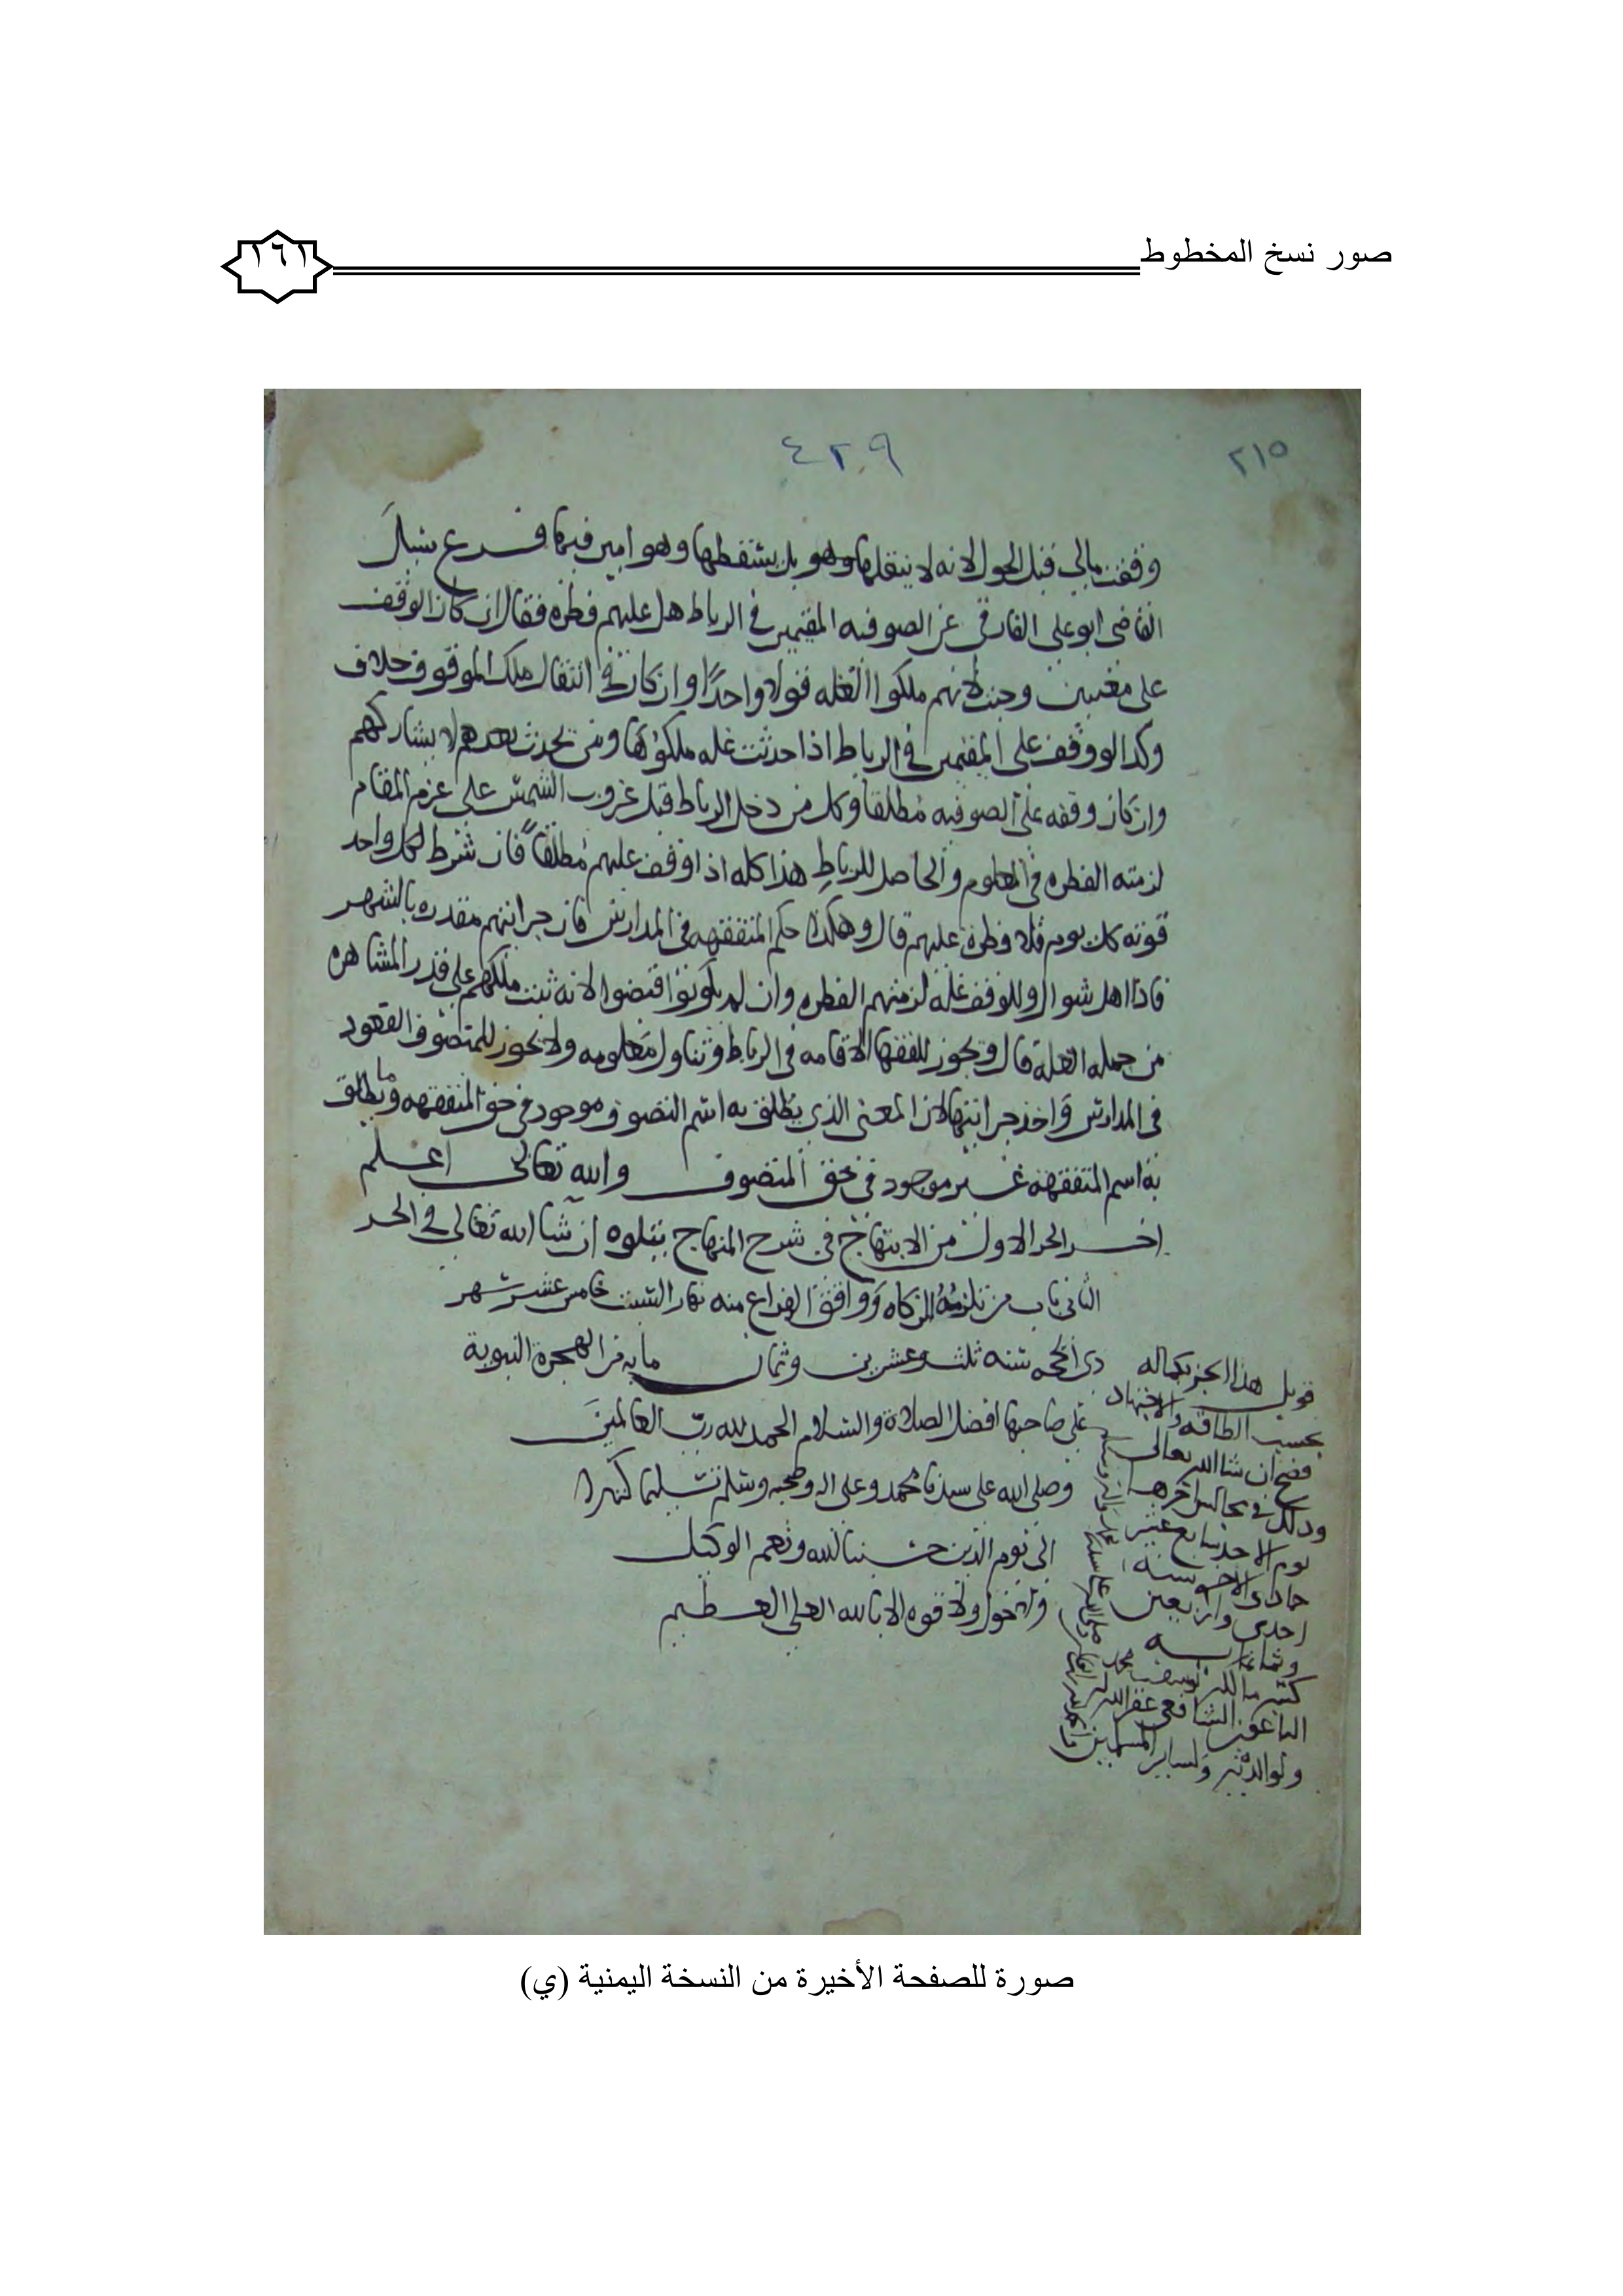 صور نسخ المخطوط
١٦١
٢١٥
٤٢٩
وقفت مالي قبل الحول لانه لا ينقلها وهو بل يشقطها وهو امين فيها فرع سئل
القاضي ابو علي الفارقي عن الصوفيه المقيمين في الرباط هل عليهم فطره فقال ان كان الوقف
على معينين وجبت لانهم ملكوا الغله قولا واحدًا وان كان في انتقال ملك الموقوف خلاف
وكذا لو وقف على المقيمين في الرباط اذا حدثت غله ملكوها ومن يحدث بعدهم لا يشاركهم
وان كان وقفه على الصوفيه مطلقا وكل من دخل الرباط قبل غروب الشمس على عزم المقام
لزمته الفطره في المعلوم والحاصل للرباط هذا كله اذا وقف عليهم مطلقاً فان شرط لكل واحد
قوته كل يوم فلا فطرة عليهم قال وهكذا حكم المتفقهه في المدارس فان جرايتهم مقدره بالشهر
فاذا اهل شوال وللوقف غله لزمتهم الفطره وان لم يكونوا قبضوا لانه ثبت ملكهم على قدر المشاهره
من جمله الغلة قال ويجوز للفقها الاقامه في الرباط وتناول معلومه ولا يجوز للمتصوف القعود
في المدارس واخذ جرايتها لان المعنى الذي يطلق به اسم التصوف موجود في حق المتفقهه وما يطلق
به اسم المتفقهه غير موجود في حق المتصوف والله تعالى اعلم
اخر الجز الاول من الابتهاج في شرح المنهاج يتلوه ان شا الله تعالى في الجز
الثاني باب من تلزمه الزكاه ووافق الفراغ منه نهار السبت خامس عشر شهر
ذي الحجه سنه ثلث وعشرين وثمان مايه من الهجرة النبوية
على صاحبها افضل الصلاة والسلام الحمد لله رب العالمين
وصلى الله على سيدنا محمد وعلى اله وصحبه وسلم تسليما كثيرا
الى يوم الدين حسبنا الله ونعم الوكيل
ولا حول ولا قوه الا بالله العلي العظيم
قوبل هذا الجز بكماله
بحسب الطاقه والاجتهاد
فصح ان شا الله تعالى
وذلك في مجالس اخرها
يوم الاحد سابع عشر
جمادى الاخر سنه
احدى واربعين
وثمانمايه
الشافعي غفر الله له
ولوالديه ولساير المسلمين
صورة للصفحة الأخيرة من النسخة اليمنية (ي)